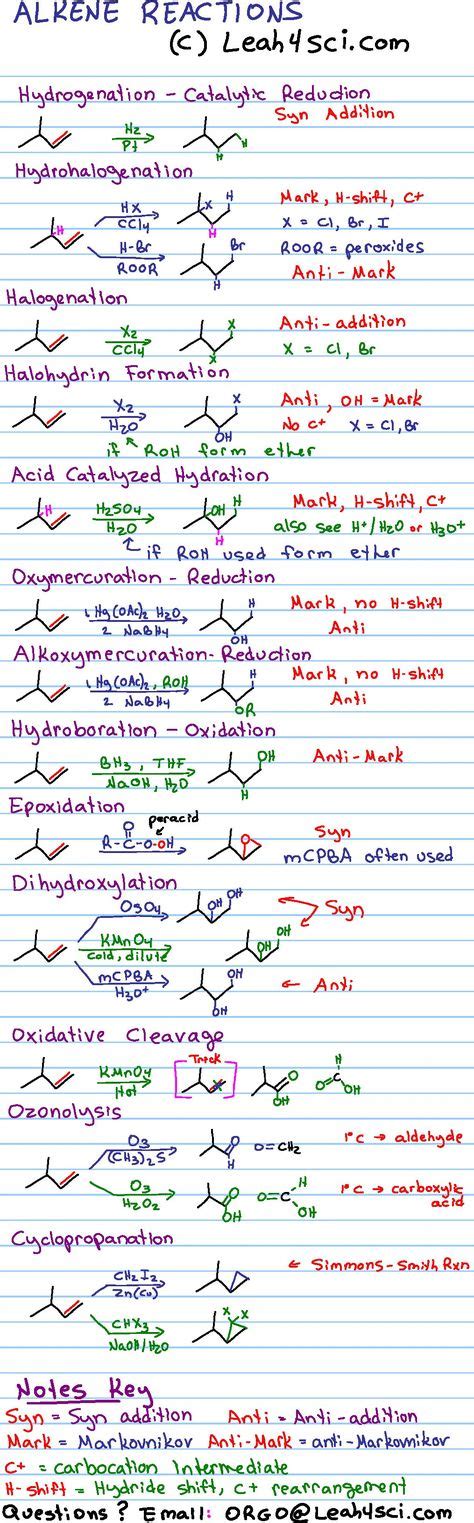 ALKENE REACTIONS
(c) Leah4sci.com
Hydrogenation - Catalytic Reduction
Syn Addition
H2
Pt
H
H
Hydrohalogenation
H
HX
CCl4
X
H
H
Mark, H-shift, C+
X = Cl, Br, I
H-Br
ROOR
Br
H
ROOR = peroxides
Anti-Mark
Halogenation
X2
CCl4
X
X
Anti-addition
X = Cl, Br
Halohydrin Formation
X2
H2O
X
OH
Anti, OH = Mark
No C+ X = Cl, Br
if ROH form ether
Acid Catalyzed Hydration
H
H2SO4
H2O
OH
H
H
Mark, H-shift, C+
also see H+/H2O or H3O+
if ROH used form ether
Oxymercuration - Reduction
1 Hg(OAc)2 H2O
2 NaBH4
H
OH
Mark, no H-shift
Anti
Alkoxymercuration-Reduction
1 Hg(OAc)2, ROH
2 NaBH4
H
OR
Mark, no H-shift
Anti
Hydroboration - Oxidation
BH3, THF
NaOH, H2O
OH
H
Anti-Mark
Epoxidation
peracid
O
R-C-O-OH
O
Syn
mCPBA often used
Dihydroxylation
OsO4
OH
OH
Syn
KMnO4
cold, dilute
OH
OH
mCPBA
H3O+
OH
OH
Anti
Oxidative Cleavage
KMnO4
Hot
Trick
O
OH
H
O=C
OH
Ozonolysis
O3
(CH3)2S
O
H
O=CH2
1°C → aldehyde
O3
H2O2
O
OH
O=C
H
OH
1°C → carboxylic
acid
Cyclopropanation
CH2I2
Zn(Cu)
← Simmons-Smith Rxn
CHX3
NaOH/H2O
X X
Notes Key
Syn = Syn addition Anti = Anti-addition
Mark = Markovnikov Anti-Mark = anti-Markovnikov
C+ = carbocation Intermediate
H-shift = Hydride shift, C+ rearrangement
Questions? Email: ORGO@Leah4sci.com